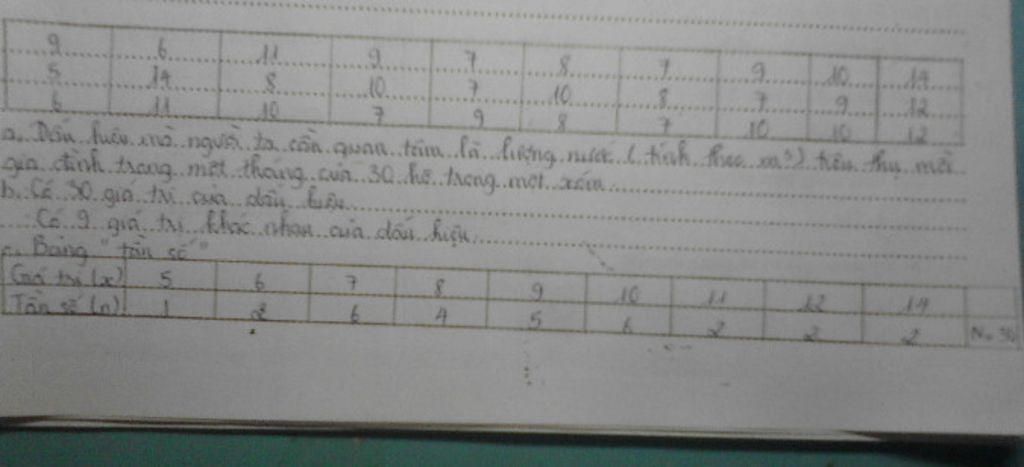 9 6 11 9 7 8 7 9 10 14
5 14 8 10 7 10 8 7 9 12
6 11 10 7 9 8 7 10 10 12
a. Dấu hiệu mà người ta cần quan tâm là lượng nước (tính theo m³) tiêu thụ mỗi
gia đình trong một tháng của 30 hộ trong một xóm.
b. Có 30 giá trị của dấu hiệu.
Có 9 giá trị khác nhau của dấu hiệu.
c. Bảng "tần số"
Giá trị (x) 5 6 7 8 9 10 11 12 14
Tần số (n) 1 2 6 4 5 6 2 2 2 N=30